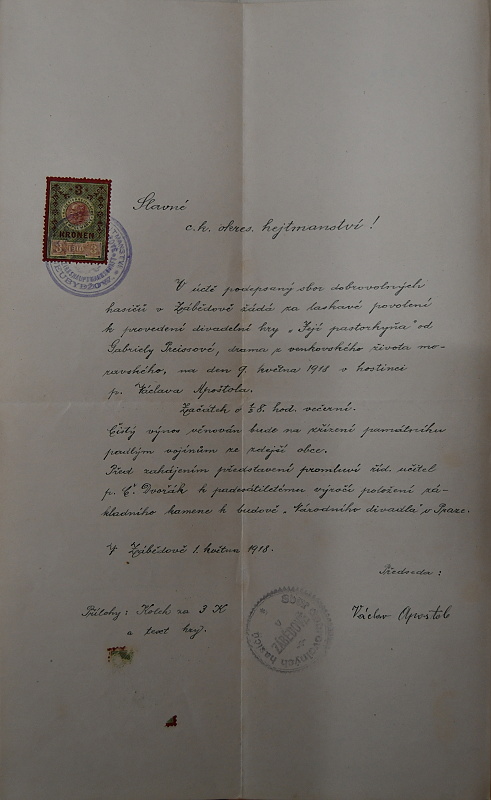 3
KRONEN
3 3
Slavné
c.k. okres. hejtmanství!
V úctě podepsaný sbor dobrovolných
hasičů v Zábědově žádá za laskavé povolení
k provedení divadelní hry „Její pastorkyňa" od
Gabriely Preissové, drama z venkovského života mo-
ravského, na den 9. května 1918 v hostinci
p. Václava Apoštola.
Začátek o ½8. hod. večerní.
Čistý výnos věnován bude na zřízení památníku
padlým vojínům ze zdejší obce.
Před zahájením představení promluví říd. učitel
p. Č. Dvořák k padesátiletému výročí položení zá-
kladního kamene k budově „Národního divadla" v Praze.
V Zábědově 1. května 1918.
Předseda:
Přílohy: Kolek za 3 K
a text hry.
Václav Apoštol
Sbor dobrovolných hasičů
v
ZÁBĚDOVĚ